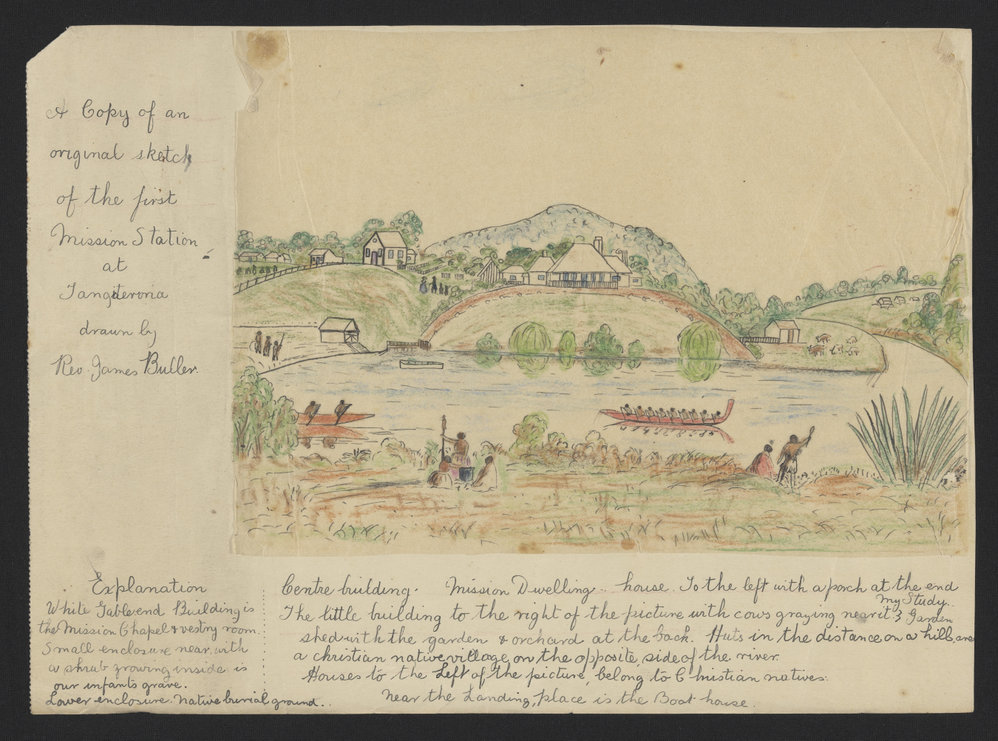 A Copy of an
original sketch
of the first
Mission Station
at
Tangiteroria
drawn by
Rev James Buller.
Explanation
White Gable end Building is
the Mission Chapel & vestry room.
Small enclosure near with
a shrub growing inside is
our infants grave.
Lower enclosure. Native burial ground.
Centre building. Mission Dwelling house. To the left with a porch at the end
my Study.
The little building to the right of the picture with cows grazing near it is Garden
shed with the garden & orchard at the back. Huts in the distance on a hill, are
a christian native village on the opposite side of the river.
Houses to the Left of the picture, belong to Christian natives.
Near the Landing, place is the Boat house.